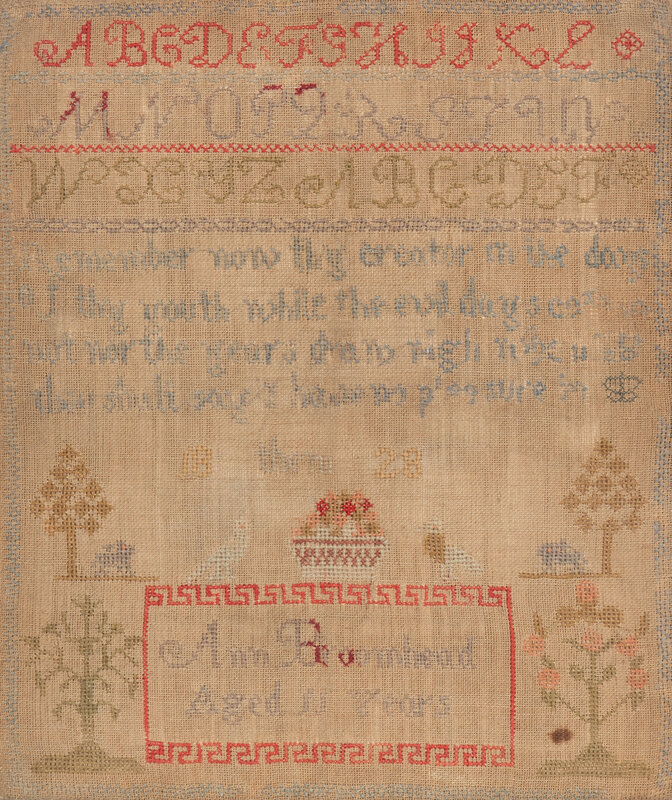 A B C D E F G H I J K L
M N O P Q R S T U
W X Y Z A B C D E F
Remember now thy creator in the days
of thy youth while the evil days come
not nor the years draw nigh when
thou shalt say I have no pleasure in
28
Ann Broomhead
Aged 11 Years